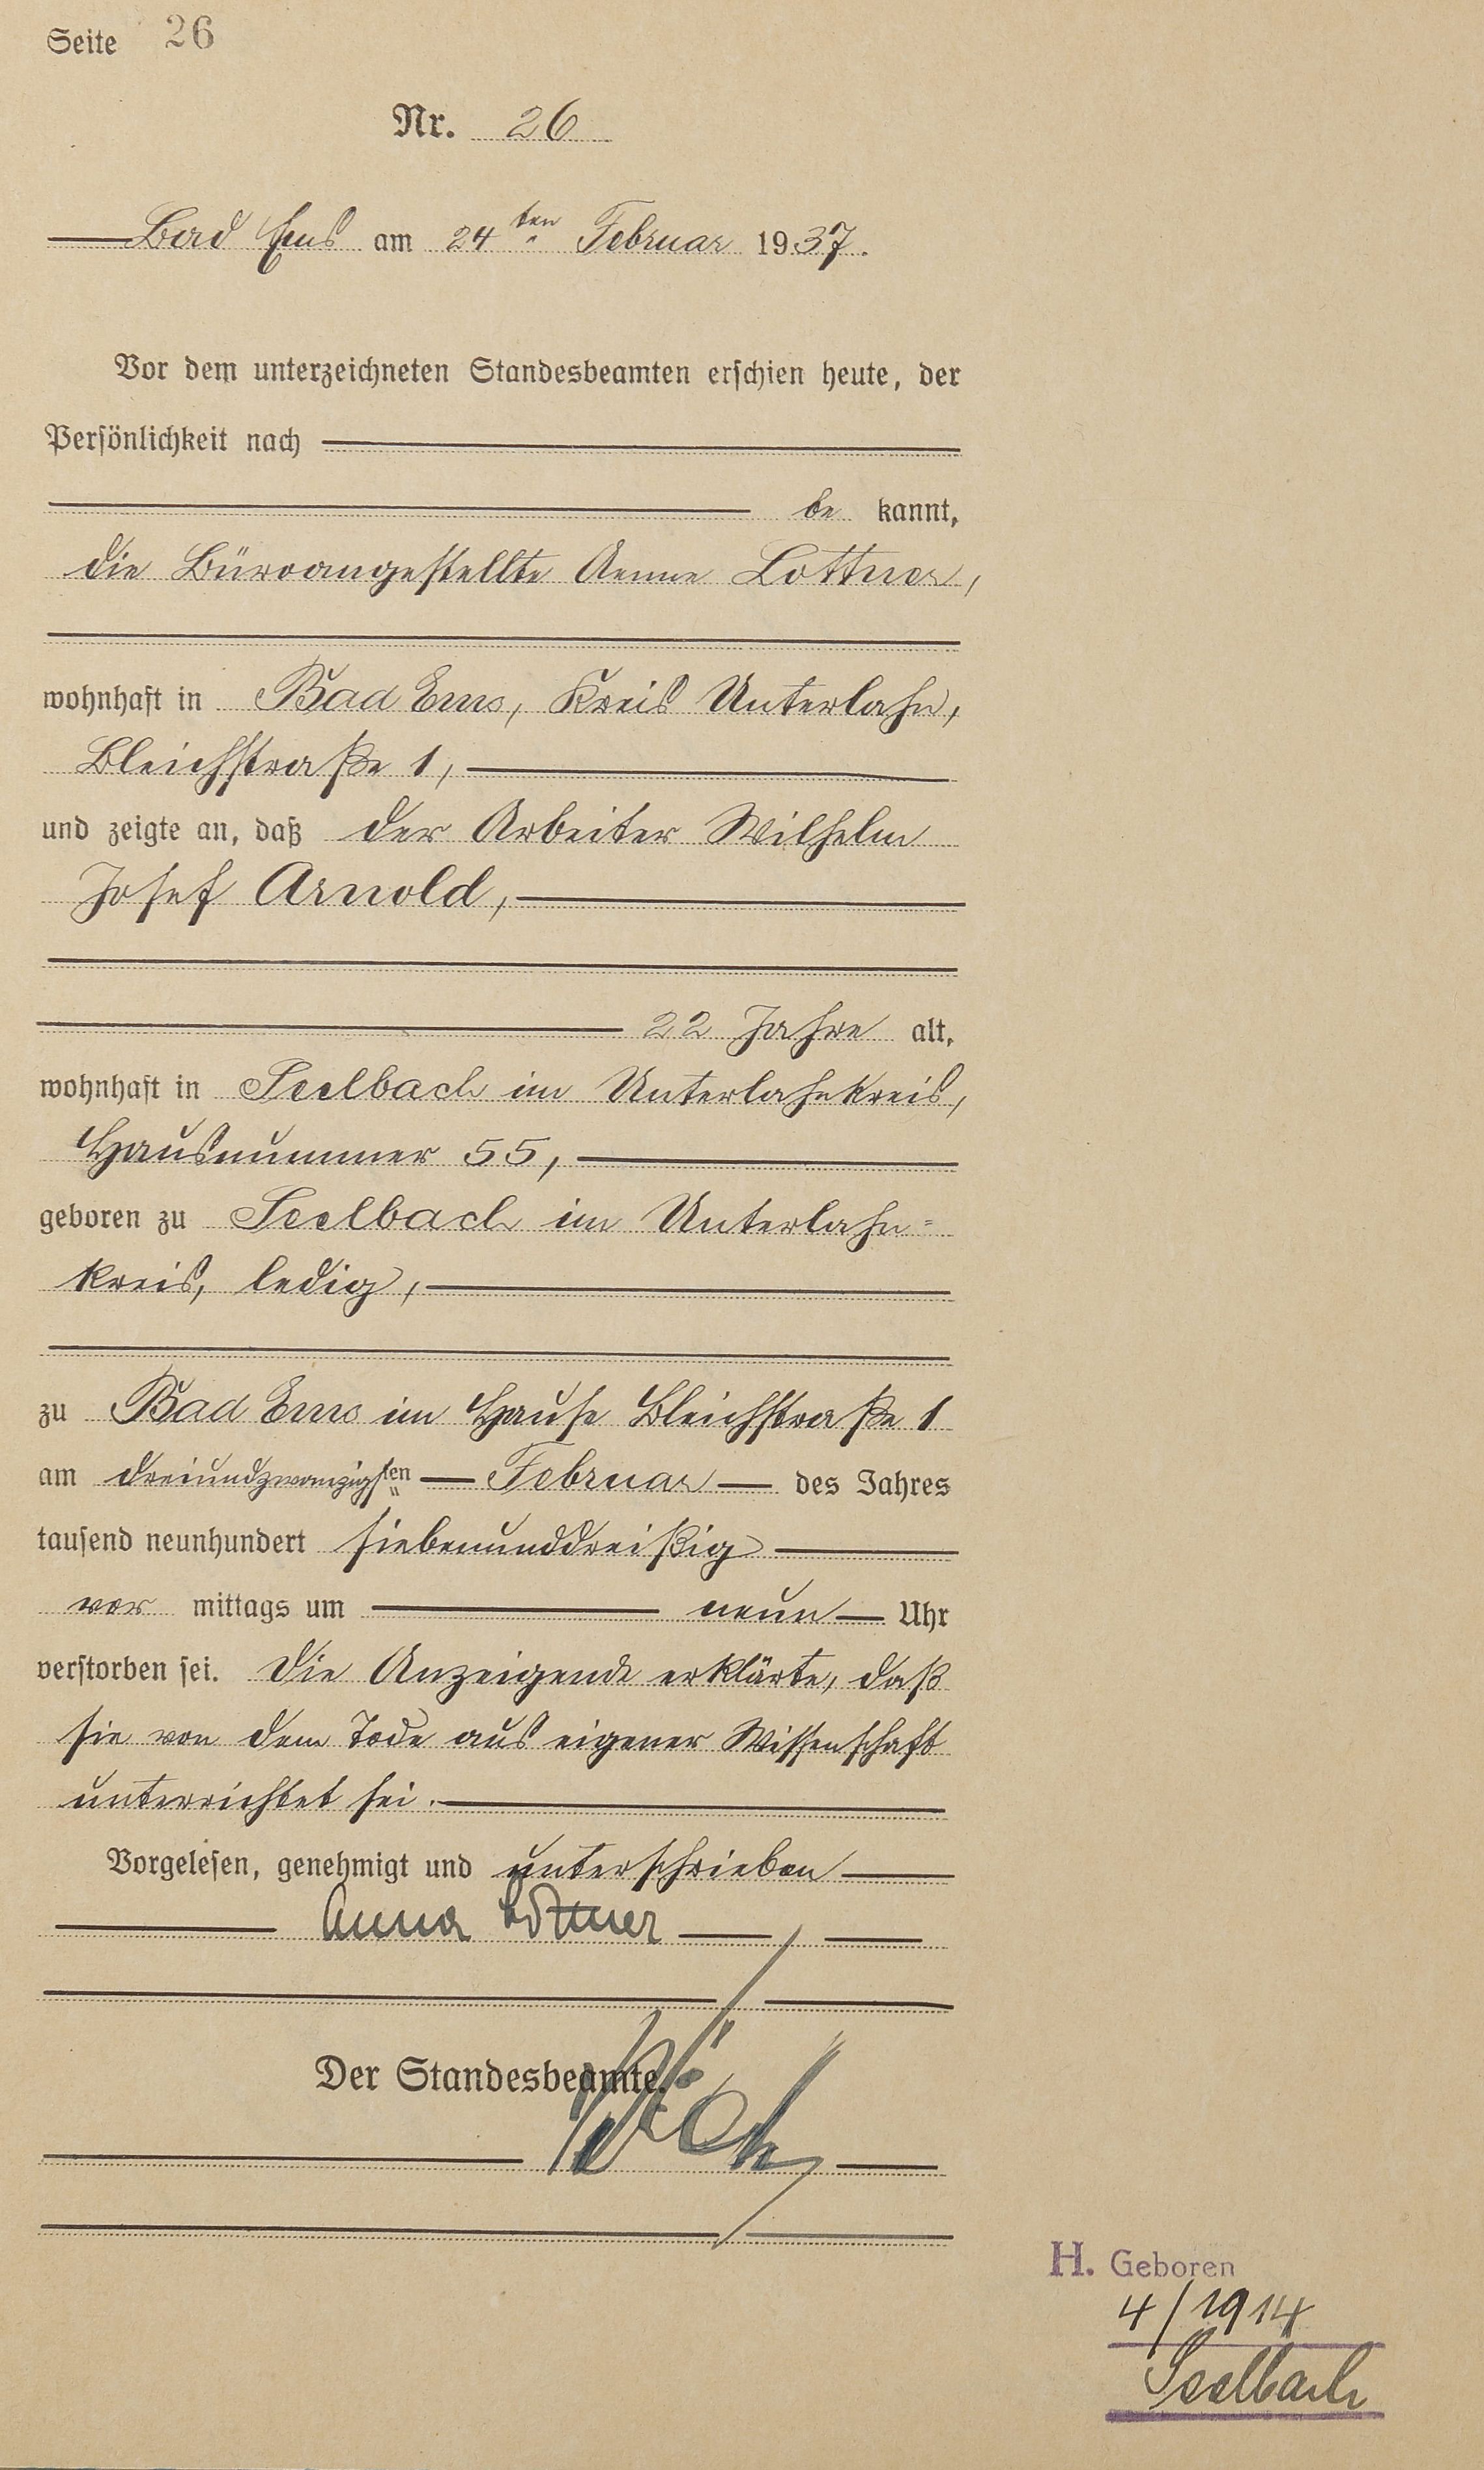 Seite 26
Nr. 26
Bad Ems am 24ten Februar 1937.
Vor dem unterzeichneten Standesbeamten erschien heute, der
Persönlichkeit nach
be kannt,
die Büroangestellte Aenne Lottner,
wohnhaft in Bad Ems, Kreis Unterlahn,
Bleichstraße 1,
und zeigte an, daß der Arbeiter Wilhelm
Josef Arnold,
22 Jahre alt,
wohnhaft in Seelbach im Unterlahnkreis,
Hausnummer 55,
geboren zu Seelbach im Unterlahn=
kreis, ledig,
zu Bad Ems im Hause Bleichstraße 1
am dreiundzwanzigsten Februar des Jahres
tausend neunhundert siebenunddreißig
vor mittags um neun Uhr
verstorben sei. Die Anzeigende erklärte, daß
sie von dem Tode aus eigener Wissenschaft
unterrichtet sei.
Vorgelesen, genehmigt und unterschrieben
Anna Lottner
Der Standesbeamte.
H. Geboren
4/1914
Seelbach